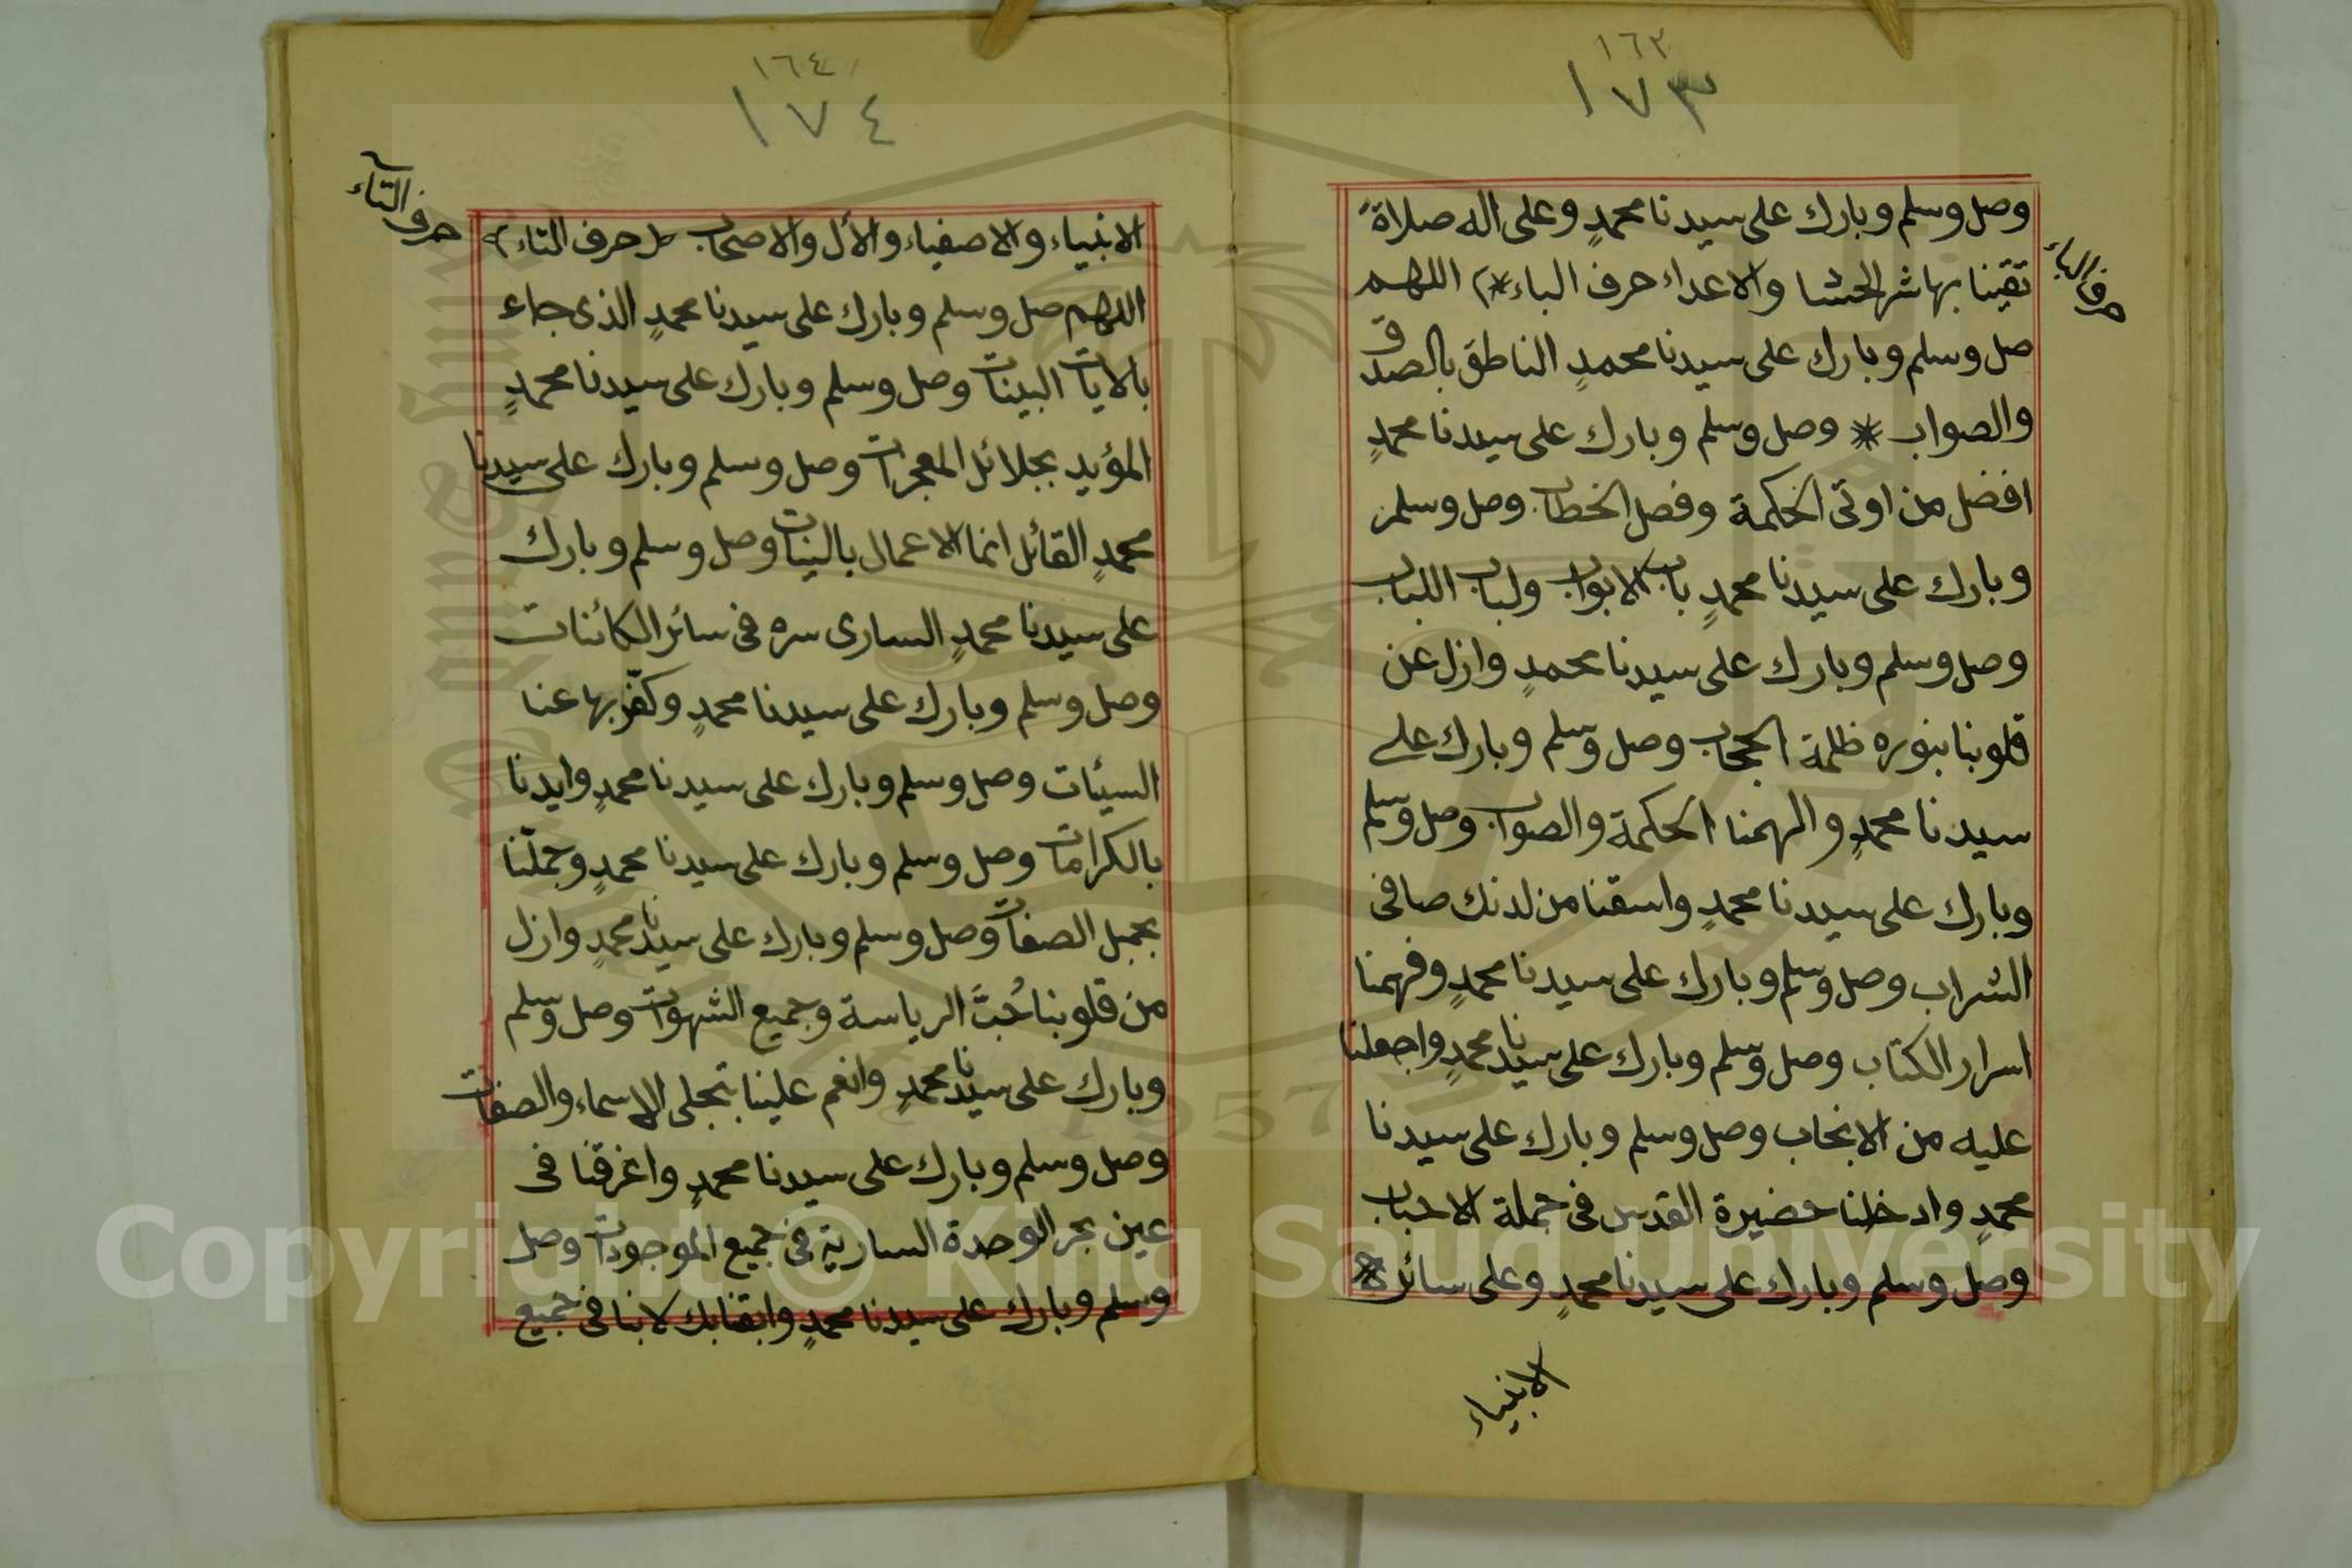 ١٦٣
١٧٣
حرف الباء
وصل وسلم وبارك على سيدنا محمدٍ وعلى اله صلاةً
تقينا بها شر الحشا والاعداء حرف الباء * اللهم
صل وسلم وبارك على سيدنا محمدٍ الناطق بالصدق
والصواب * وصل وسلم وبارك على سيدنا محمدٍ
افضل من اوتى الحكمة وفصل الخطاب وصل وسلم
وبارك على سيدنا محمدٍ باب الابواب ولباب اللباب
وصل وسلم وبارك على سيدنا محمدٍ وازل عن
قلوبنا بنوره ظلمة الحجاب وصل وسلم وبارك على
سيدنا محمدٍ والهمنا الحكمة والصواب وصل وسلم
وبارك على سيدنا محمدٍ واسقنا من لدنك صافى
الشراب وصل وسلم وبارك على سيدنا محمدٍ وفهمنا
اسرار الكتاب وصل وسلم وبارك على سيدنا محمدٍ واجعلنا
عليه من الانجاب وصل وسلم وبارك على سيدنا
محمدٍ وادخلنا حضيرة القدس فى جملة الاحباب
وصل وسلم وبارك على سيدنا محمدٍ وعلى سائر
الانبياء
١٦٤
١٧٤
حرف التاء
الانبياء والاصفياء والأل والاصحاب (حرف التاء)
اللهم صل وسلم وبارك على سيدنا محمدٍ الذى جاء
بالايات البينات وصل وسلم وبارك على سيدنا محمدٍ
المؤيد بجلائل المعجزات وصل وسلم وبارك على سيدنا
محمدٍ القائل انما الاعمال بالنيات وصل وسلم وبارك
على سيدنا محمدٍ السارى سره فى سائر الكائنات
وصل وسلم وبارك على سيدنا محمدٍ وكفّر بها عنا
السيئات وصل وسلم وبارك على سيدنا محمدٍ وايدنا
بالكرامات وصل وسلم وبارك على سيدنا محمدٍ وجملّنا
بجميل الصفات وصل وسلم وبارك على سيدنا محمدٍ وازل
من قلوبنا حُبَّ الرياسة وجميع الشهوات وصل وسلم
وبارك على سيدنا محمدٍ وانعم علينا بتجلى الاسماء والصفات
وصل وسلم وبارك على سيدنا محمدٍ واغرقنا فى
عين بحر الوحدة السارية فى جميع الموجودات وصل
وسلم وبارك على سيدنا محمدٍ وابقنا بك لا بنا فى جميع
Copyright © King Saud University
1957